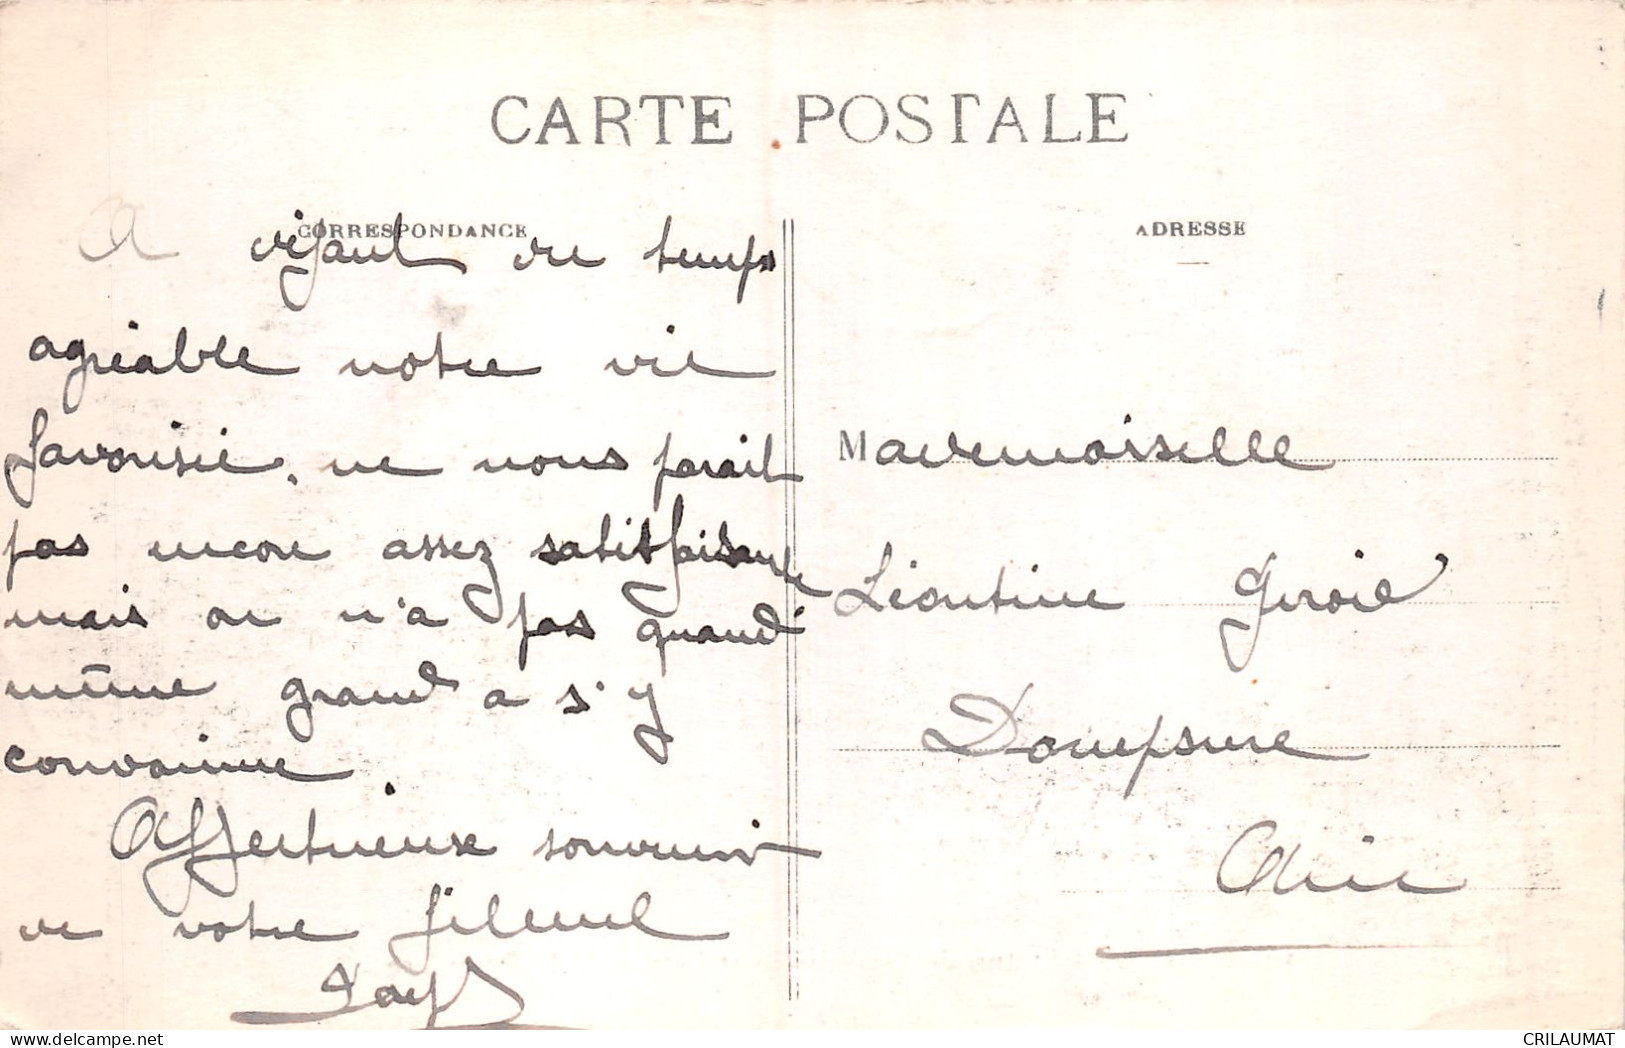 CARTE POSTALE
CORRESPONDANCE
ADRESSE
A de temps
agréable notre vie
favorisée, ne nous parait
pas encore assez satisfaisante
mais on n'a pas quand
même grand a s'y
convaincre.
Affectueux souvenir
de votre filleul
Mademoiselle
Léontine
Dompsure
Ain
CRILAUMAT